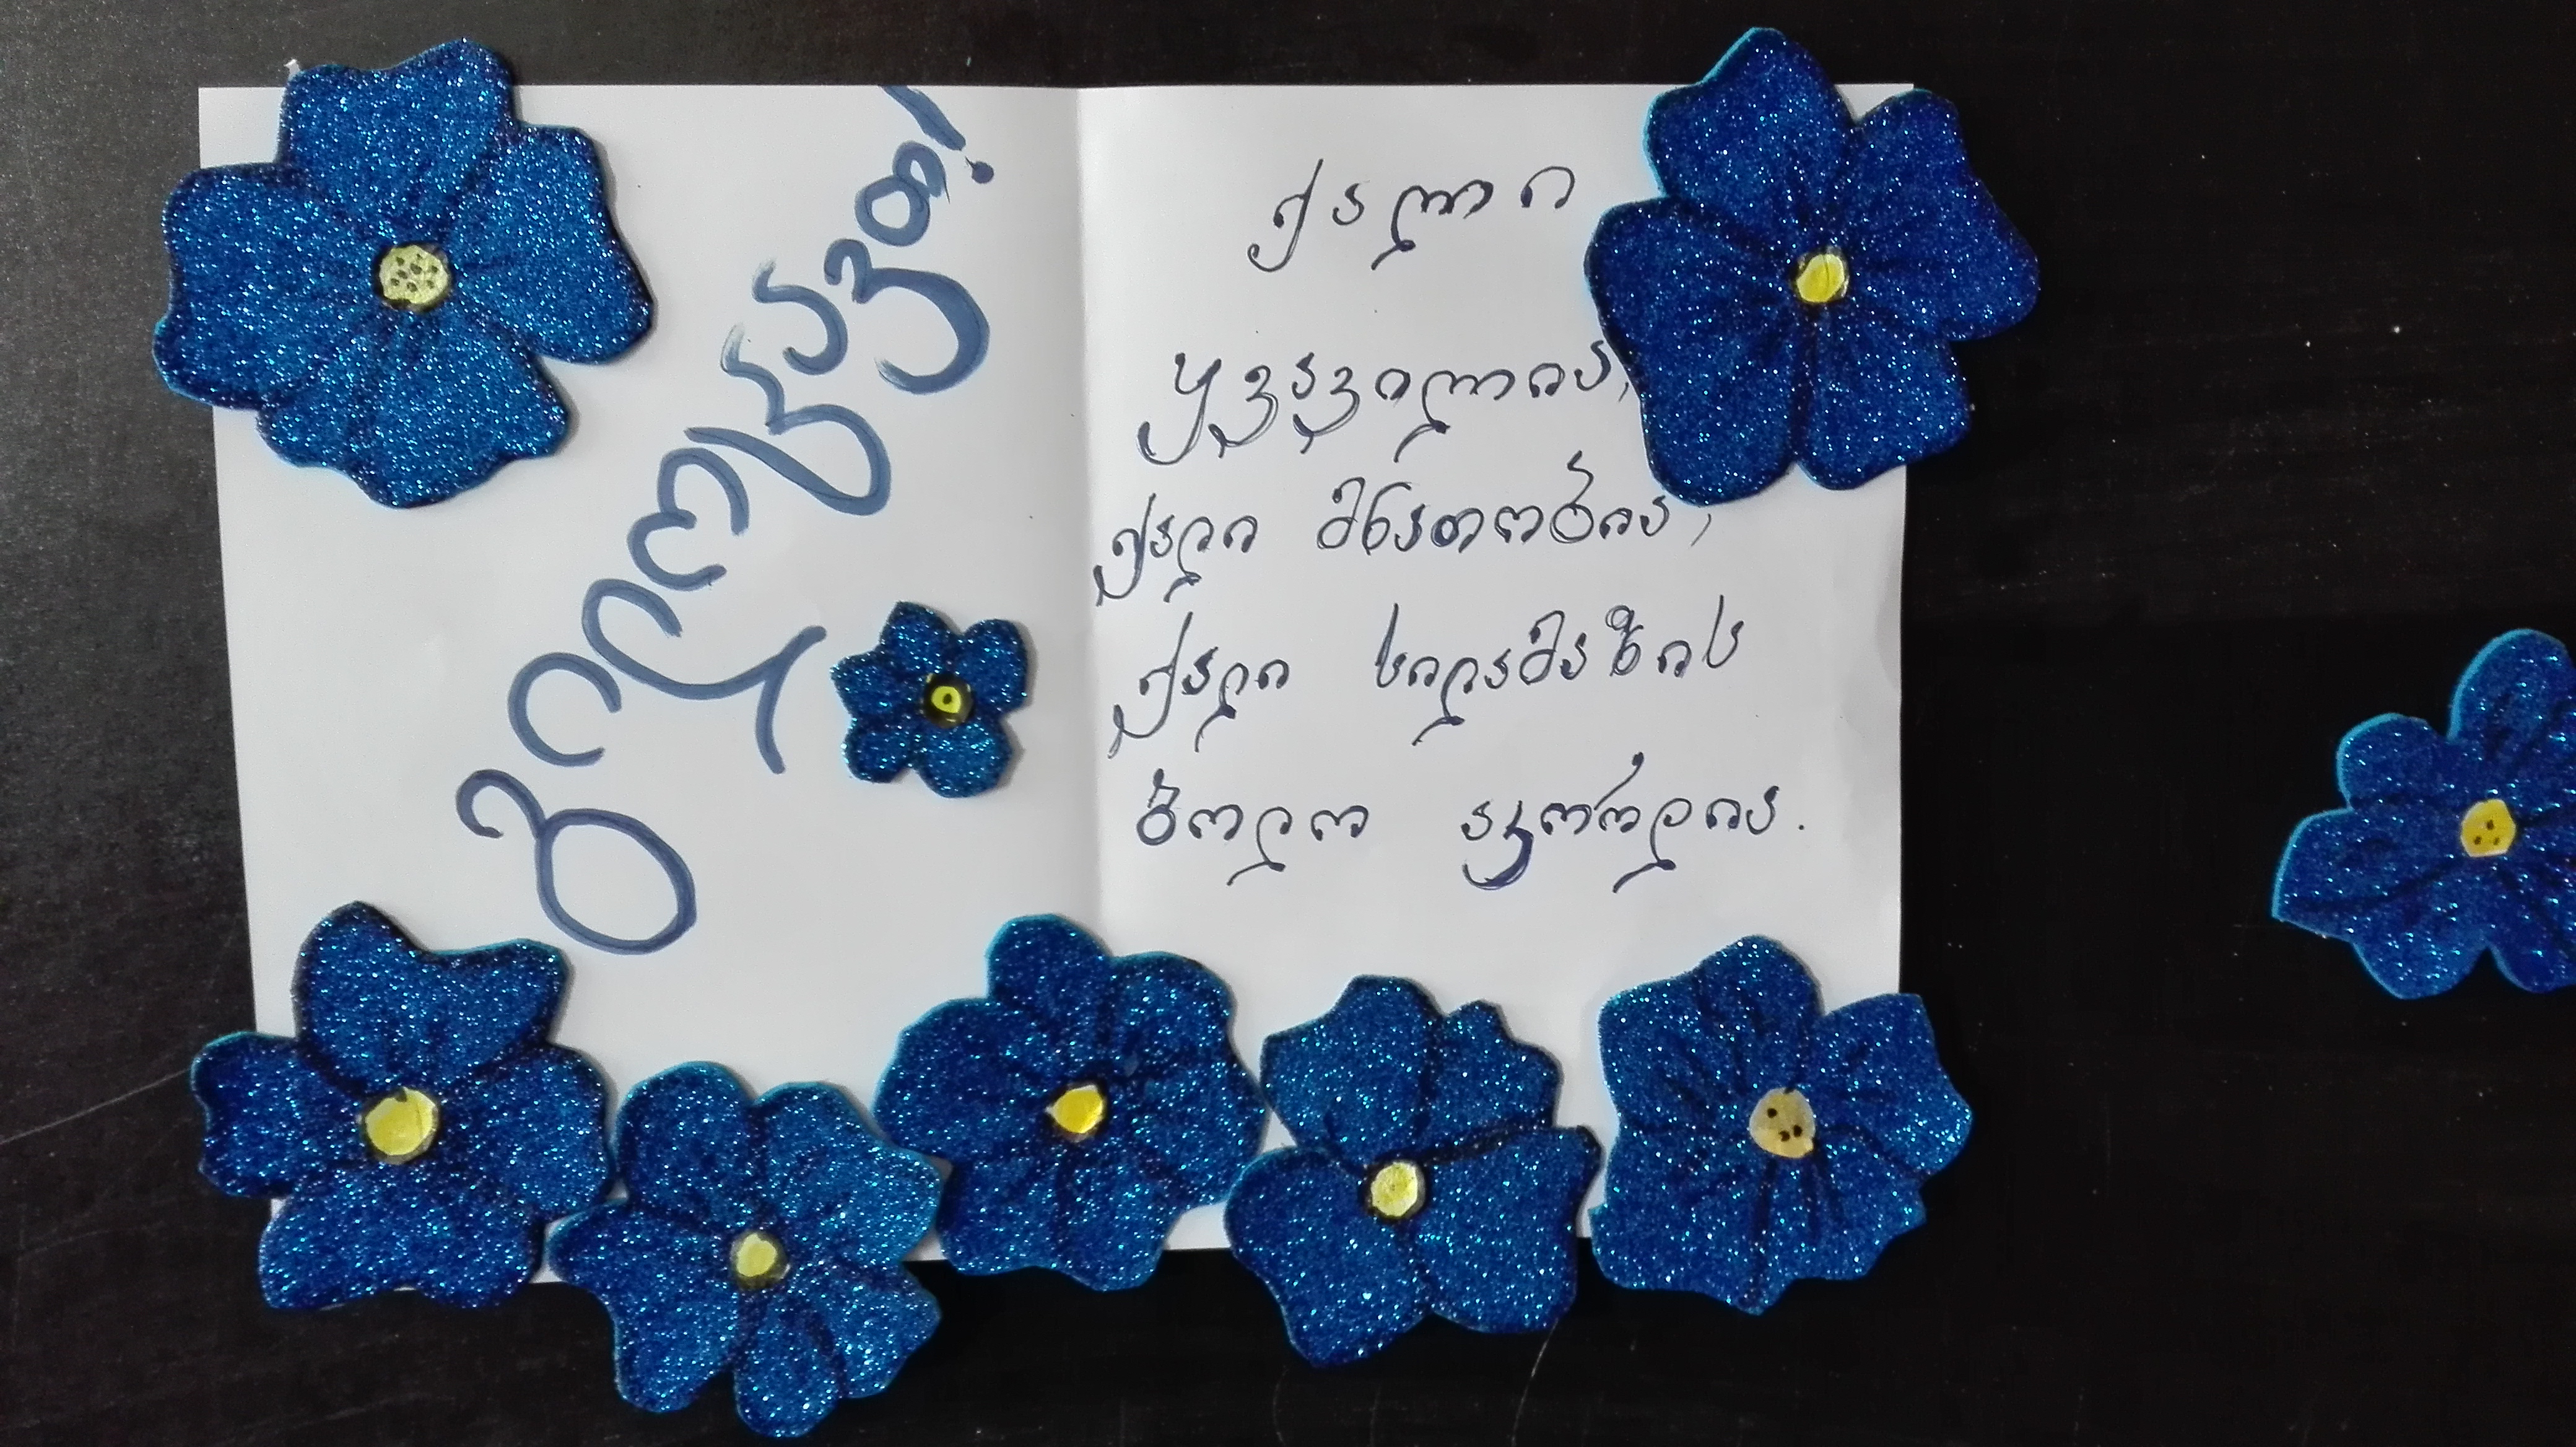 გილოცავთ!
ქალი
ყვავილია,
ქალი მნათობია,
ქალი სილამაზის
ბოლო აკორდია.